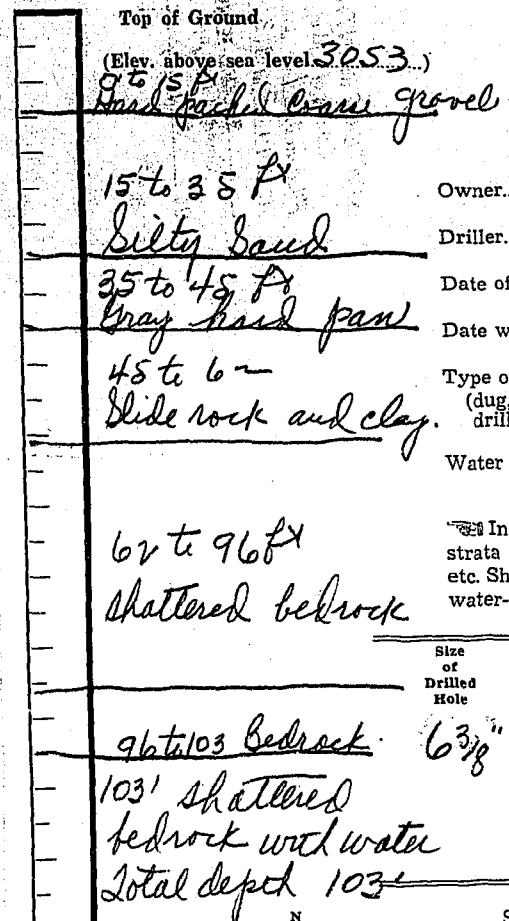 Top of Ground
(Elev. above sea level 3053...)
0 to 15 ft
Hard packed coarse gravel
15 to 35 ft
Silty Sand
35 to 45 ft
Gray hard pan
45 to 6
Slide rock and clay.
62 to 96 ft
shattered bedrock
96 to 103 Bedrock.
103' shattered
bedrock with water
Total depth 103'
Owner..
Driller.
Date of
Date w
Type o
(dug,
drill
Water
In
strata
etc. Sh
water-
Size
of
Drilled
Hole
6 3/8"
N